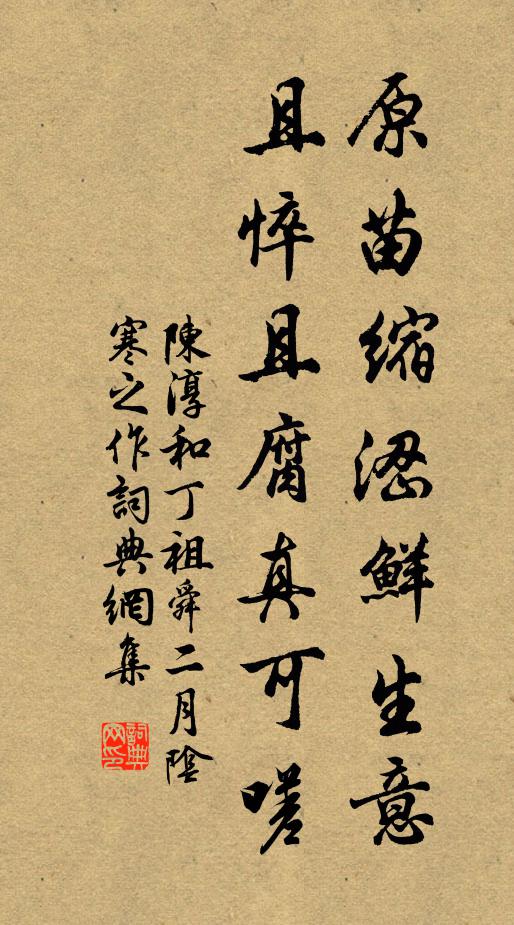 原苗缩涩鮮生意
且悴且腐真可嗟
陳淳和丁祖舜二月陰
寒之作詞典網集
詞典网印